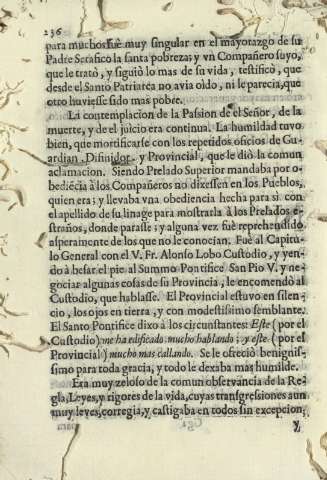 236
para muchos fuè muy singular en el mayorazgo de su
Padre Serafico la santa pobreza; y vn Compañero suyo,
que le tratò, y siguiò lo mas de su vida, testificò, que
desde el Santo Patriarca no avia oìdo, ni le parecia, que
otro huviesse sido mas pobre.
La contemplacion de la Passion de el Señor, de la
muerte, y de el juicio era continua. La humildad tuvo
bien, que mortificarse con los repetidos oficios de Gu-
ardian, Difinidor, y Provincial, que le diò la comun
aclamacion. Siendo Prelado Superior mandaba por o-
bediẽcia à los Compañeros no dixessen en los Pueblos,
quien era; y llevaba vna obediencia hecha para si con
el apellido de su linage para mostrarla à los Prelados e-
straños, donde parasse; y alguna vez fuè reprehendido
asperamente de los que no le conocian. Fuè al Capitu-
lo General con el V. Fr. Alonso Lobo Custodio, y yen-
do à besar el pie al Summo Pontifice San Pio V. y ne-
gociar algunas cosas de su Provincia, le encomendò al
Custodio, que hablasse. El Provincial estuvo en silen-
cio, los ojos en tierra, y con modestissimo semblante.
El Santo Pontifice dixo à los circunstantes: Este (por el
Custodio) me ha edificado mucho hablando; y este (por el
Provincial) mucho mas callando. Se le ofreciò benignis-
simo para toda gracia, y todo le dexaba mas humilde.
Era muy zeloso de la comun observancia de la Re-
gla, Leyes, y rigores de la vida, cuyas transgressiones aun
muy leves, corregia, y castigaba en todos sin excepcion,
y